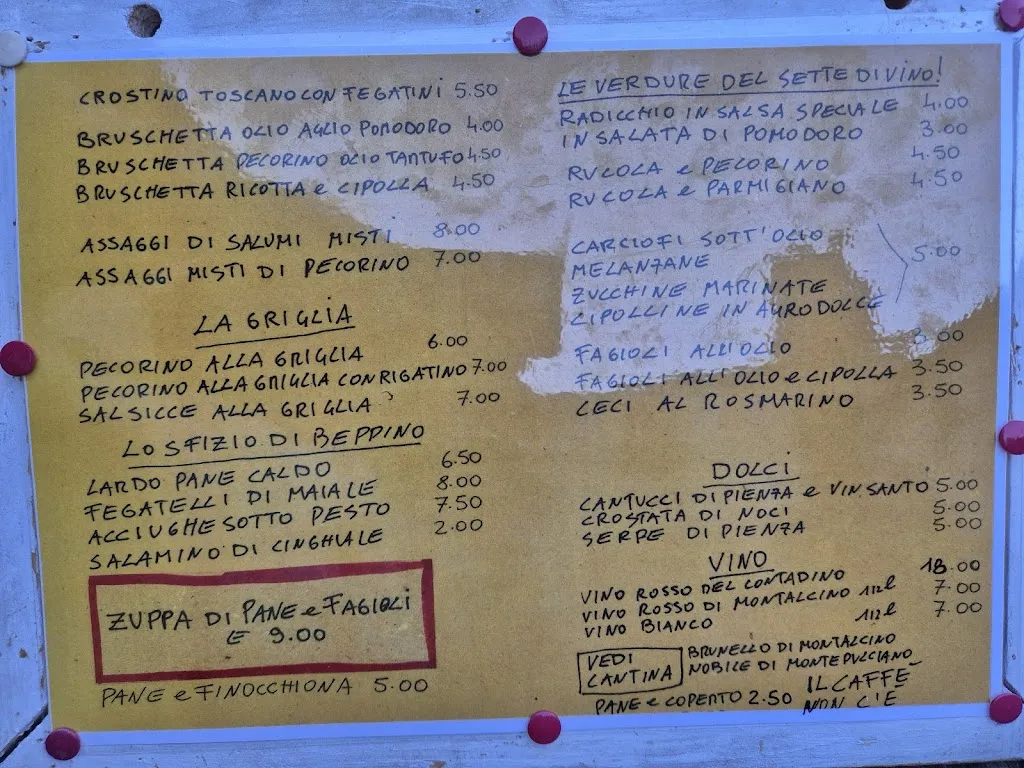 CROSTINO TOSCANO CON FEGATINI 5.50
BRUSCHETTA OLIO AGLIO POMODORO 4.00
BRUSCHETTA PECORINO OLIO TARTUFO 4.50
BRUSCHETTA RICOTTA e CIPOLLA 4.50
ASSAGGI DI SALUMI MISTI 8.00
ASSAGGI MISTI DI PECORINO 7.00
LA GRIGLIA
PECORINO ALLA GRIGLIA 6.00
PECORINO ALLA GRIGLIA CON RIGATINO 7.00
SALSICCE ALLA GRIGLIA 7.00
LO SFIZIO DI BEPPINO
LARDO PANE CALDO 6.50
FEGATELLI DI MAIALE 8.00
ACCIUGHE SOTTO PESTO 7.50
SALAMINO DI CINGHIALE 2.00
ZUPPA DI PANE e FAGIOLI
€ 9.00
PANE e FINOCCHIONA 5.00
LE VERDURE DEL SETTE DI VINO!
RADICCHIO IN SALSA SPECIALE 4.00
INSALATA DI POMODORO 3.00
RUCOLA e PECORINO 4.50
RUCOLA e PARMIGIANO 4.50
CARCIOFI SOTT'OLIO
MELANZANE 5.00
ZUCCHINE MARINATE
CIPOLLINE IN AGRODOLCE
FAGIOLI ALL'OLIO 3.00
FAGIOLI ALL'OLIO e CIPOLLA 3.50
CECI AL ROSMARINO 3.50
DOLCI
CANTUCCI DI PIENZA e VIN SANTO 5.00
CROSTATA DI NOCI 5.00
SERPE DI PIENZA 5.00
VINO
VINO ROSSO DEL CONTADINO 18.00
VINO ROSSO DI MONTALCINO 1/2 l 7.00
VINO BIANCO 1/2 l 7.00
VEDI CANTINA
BRUNELLO DI MONTALCINO
NOBILE DI MONTEPULCIANO
PANE e COPERTO 2.50
IL CAFFÈ
NON C'È